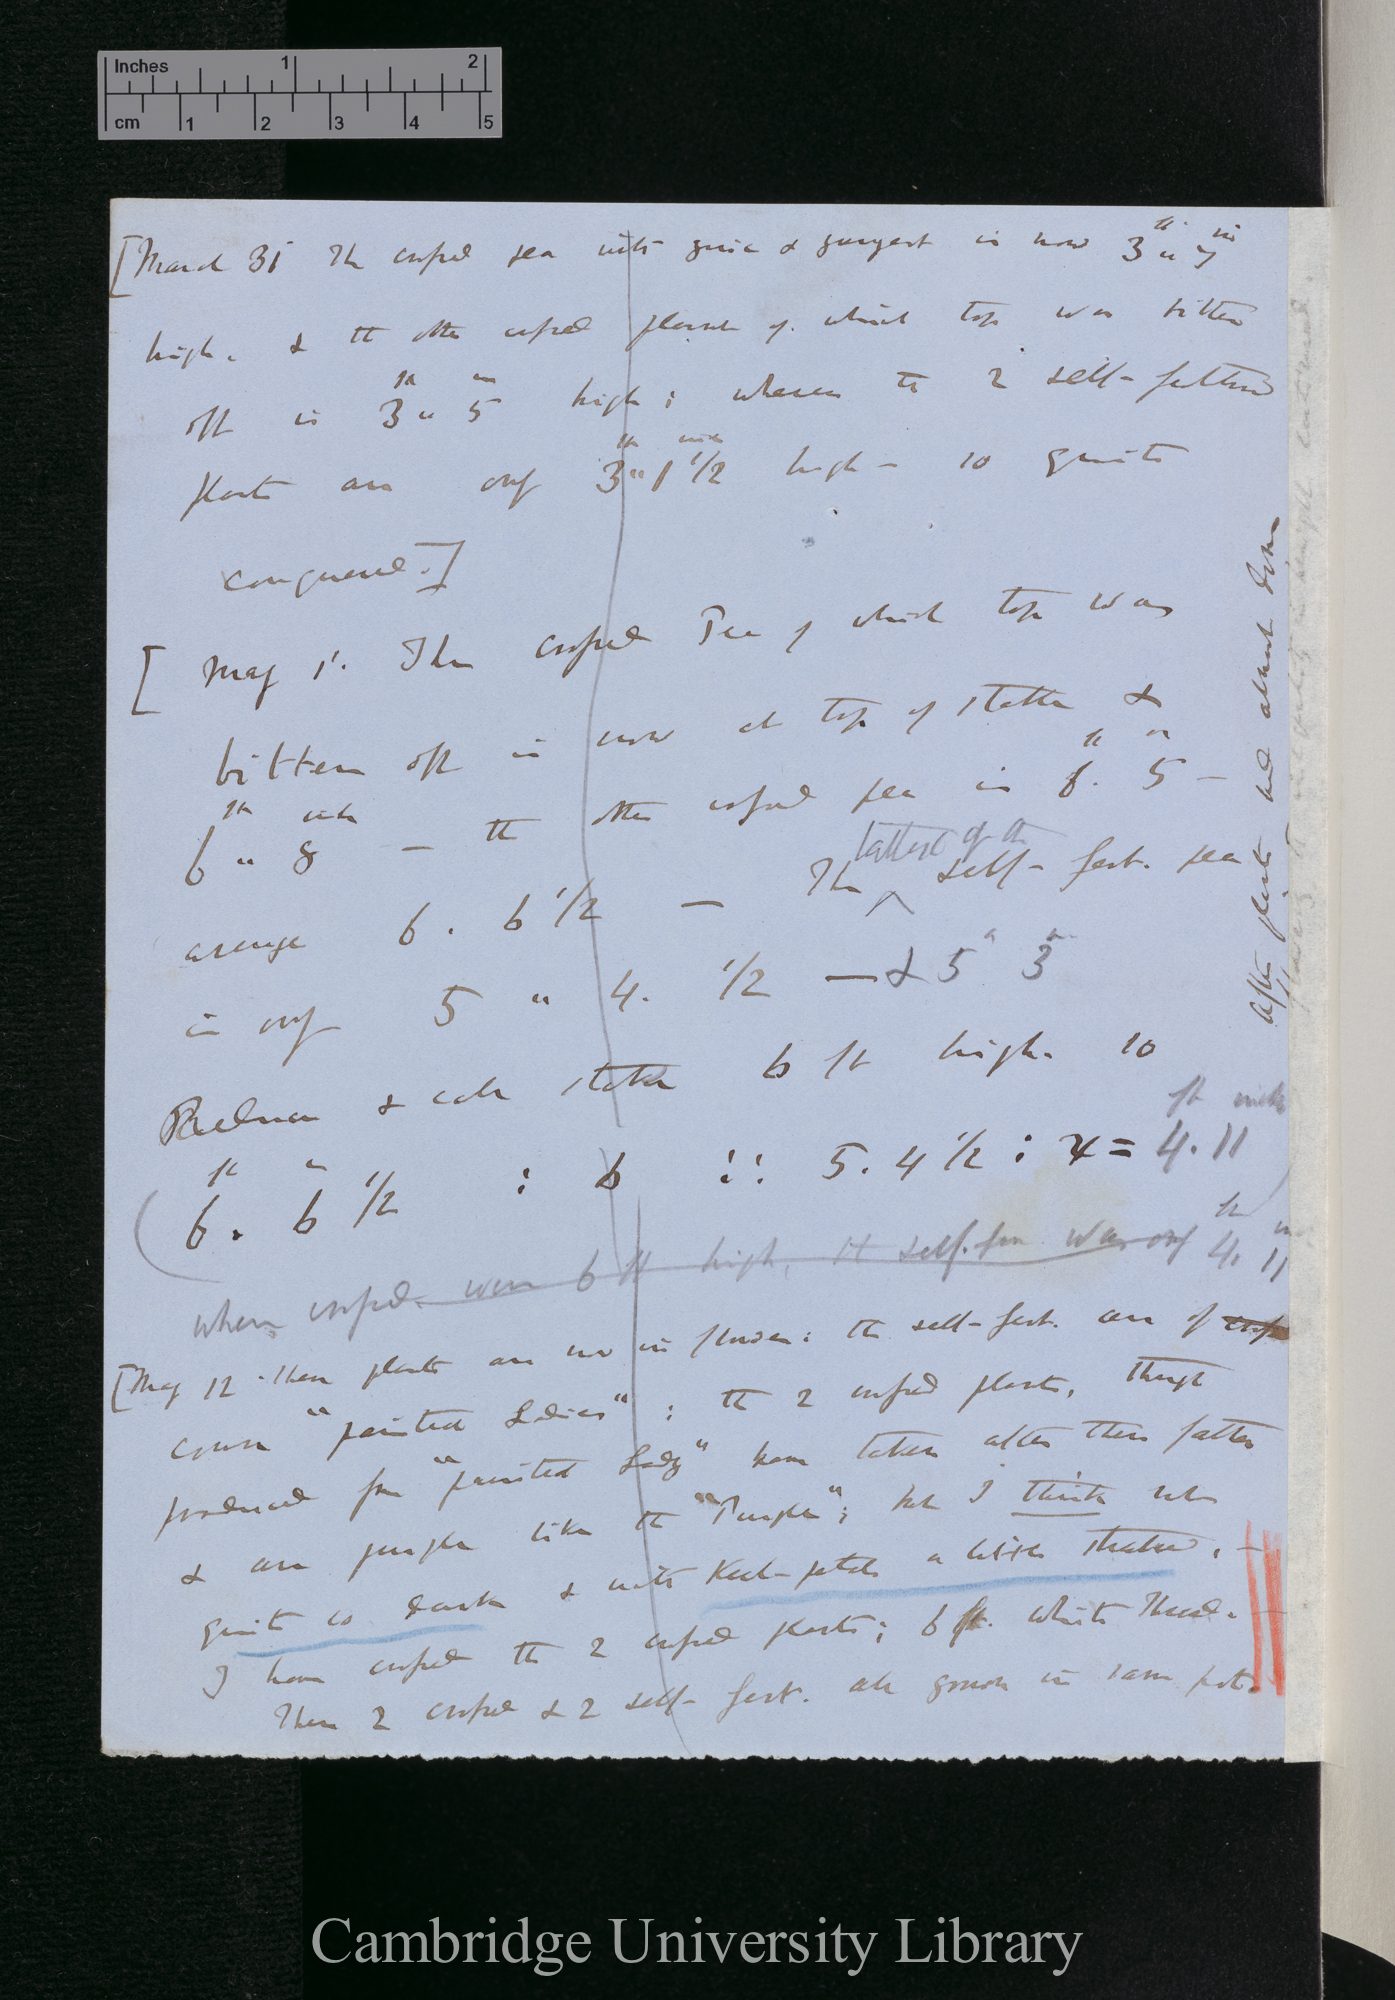 Inches 1 2
cm 1 2 3 4 5
[March 31 The crossed pea with & youngest is now 3 ft " 7 in
high. & the other crossed plant of which top was bitten
off is 3 ft " 5 in high; whereas the 2 self-fertilised
plants are only 3 ft " 1 1/2 inch high — so quite
conquered.]
[May 1st. The crossed Pea of which top was
bitten off is now at top of stake &
6 ft " 8 inch — the other crossed pea is 6 ft. 5 in —
average 6. 6 1/2 — The ^ tallest of the self-fert. pea
is only 5 " 4. 1/2 — & 5 " 3
& stake 6 ft high. so
6 ft. 6 1/2 in : 6 :: 5. 4 1/2 : x = 4 ft. 11 inch
when crossed were 6 ft high, the self. fer was only 4 ft. 11 in
[May 12. these plants are now in flower: the self-fert. are of
course "painted Ladies"; the 2 crossed plants, though
produced from "painted Lady" have taken after their father
& are purple like the "Purple"; but I think not
quite so dark & with Keel-petals a little
I have crossed the 2 crossed plants; 6 fl. White Thread. —
These 2 crossed & 2 self-fert. all grown in same pot.
After plants had almost done
Cambridge University Library